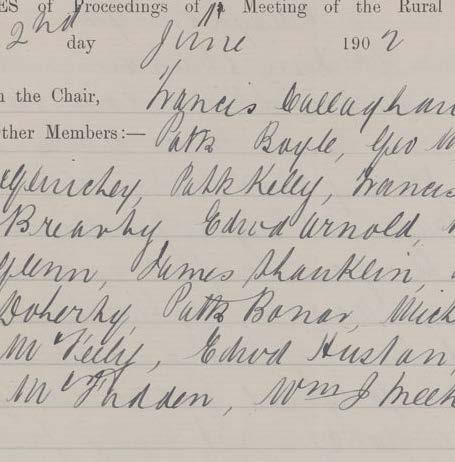 ES of Proceedings of a Meeting of the Rural
2nd day June 1902
n the Chair, Francis Callaghan
ther Members:— Patk Boyle, Geo
Patk Kelly, Francis
Edwd Arnold,
Glenn, James Shanklin,
Doherty, Patk Bonar, Mich
McFeely, Edwd Huston,
McFadden, Wm J Meek